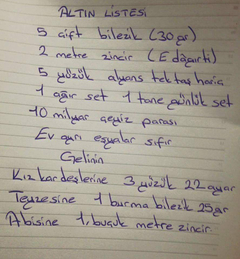 ALTIN LİSTESİ
5 çift bilezik (30 gr)
2 metre zincir (Edoğarti)
5 yüzük alyans tektaş hariç
1 ağır set 1 tane günlük set
10 milyar çeyiz parası
Ev ayrı eşyalar sıfır
Gelinin
Kız kardeşlerine 3 yüzük 22 ayar
Teyzesine 1 burma bilezik 25gr
Abisine 1,buçuk metre zincir